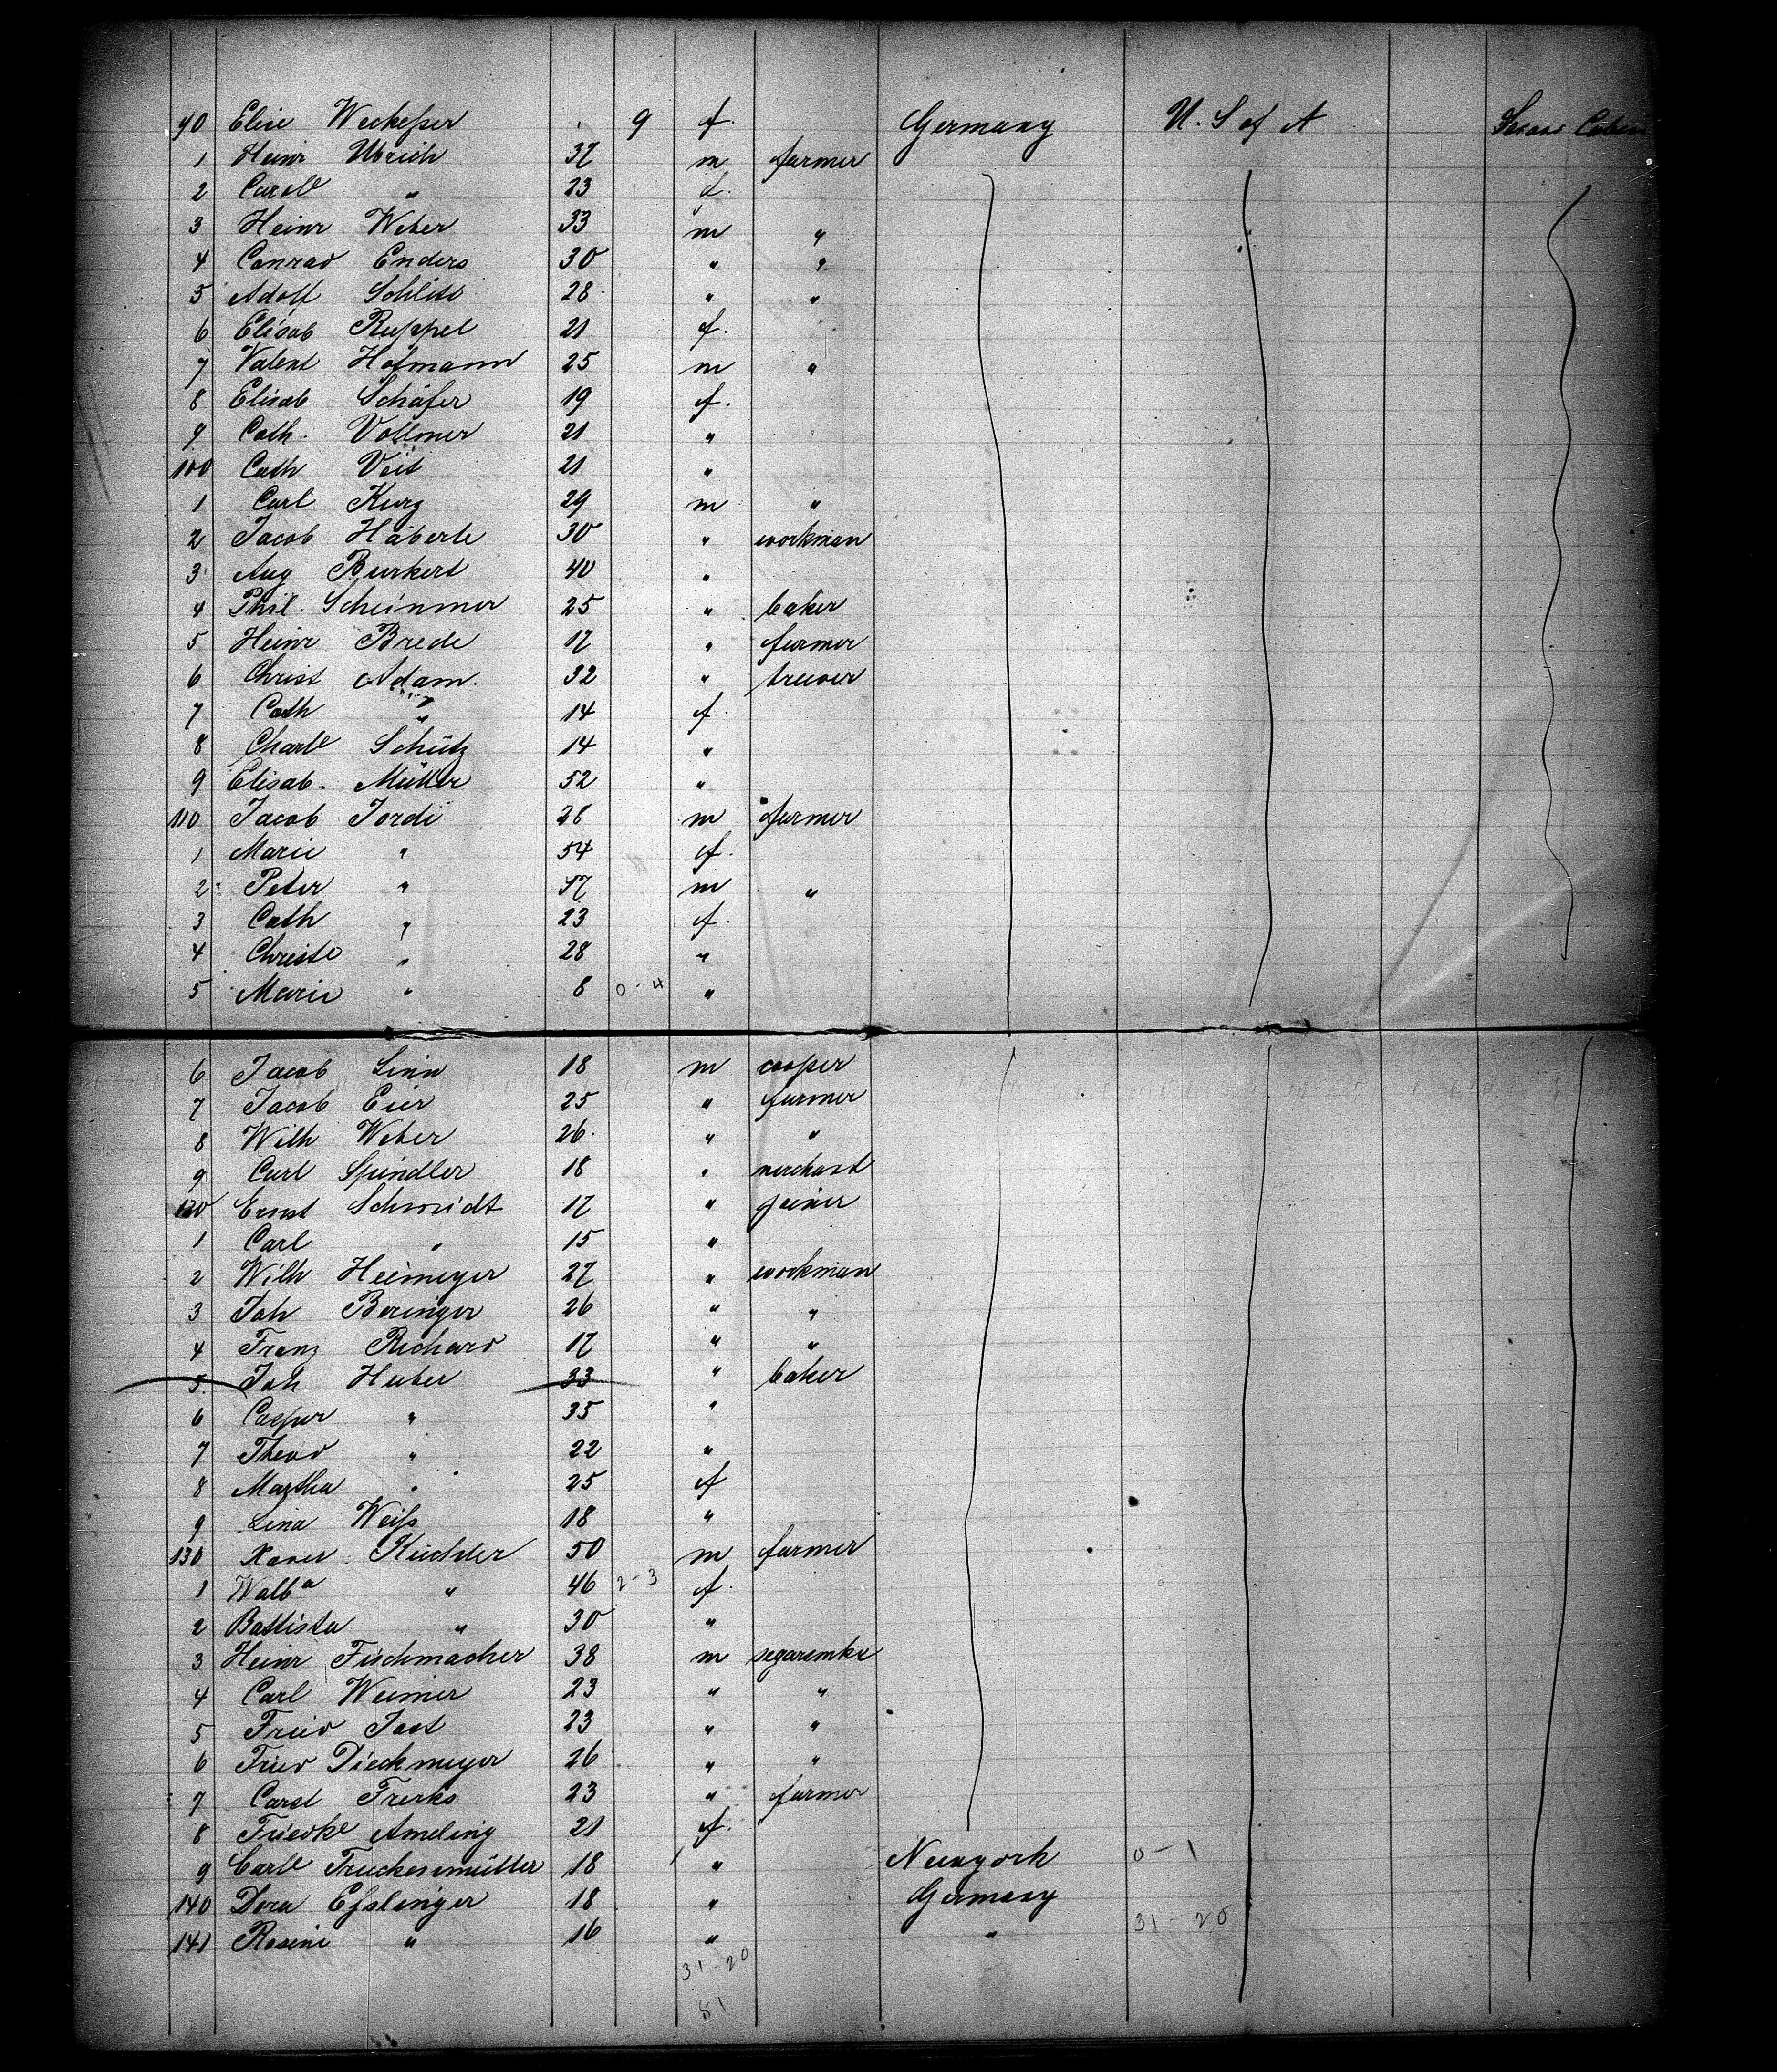 90 Elise Weckesser 9 f. Germany U. S of A
1 Heinr Ulrich 37 m farmer
2 Carole " 23 f.
3 Heinr Weber 33 m "
4 Conrad Enders 30 " "
5 Adolf 28 " "
6 Elisab Ruppel 21 f.
7 Valent Hofmann 25 m "
8 Elisab Schäfer 19 f.
9 Cath. Vollmer 21 "
100 Cath Veit 21 "
1 Carl Kurz 29 m "
2 Jacob Häberle 30 " workman
3 Aug Burkert 40 "
4 Phil. Scheinmer 25 " baker
5 Heinr Brede 17 " farmer
6 Christ Adam. 32 " brewer
7 Cath " 14 f.
8 Charle Schütz 14 "
9 Elisab. Müller 52 "
110 Jacob Jordi 28 m farmer
1 Marie " 54 f.
2 Peter " 17 m "
3 Cath " 23 f.
4 Christe " 28 "
5 Marie " 8 0-4 "
6 Jacob Linn 18 m cooper
7 Jacob Eier 25 " farmer
8 Wilh Weber 26. " "
9 Carl Spindler 18 " merchant
120 Ernst Schmidt 17 " joiner
1 Carl " 15 "
2 Wilh Heimeyer 27 " workman
3 Joh Beringer 26 " "
4 Franz Richard 17 " "
5. Joh Huber 33 " baker
6 Caspar " 35 "
7 Theod " 22 "
8 Martha " 25 f
9 Lina Weiss 18 "
130 Xaver Küchler 50 m farmer
1 Walba " 46 2-3 f.
2 Battista " 30 "
3 Heinr Fischmacher 38 m segaremkr
4 Carl Weimer 23 " "
5 Fried Jost 23 " "
6 Fried Dieckmeyer 26 " "
7 Carst Frerks 23 " farmer
8 Friedke Ameling 21 f.
9 Carle Truckenmüller 18 " Newyork 0-1
140 Dora Esslinger 18 " Germany
31-20
141 Rosine " 16 " "
31-20
81